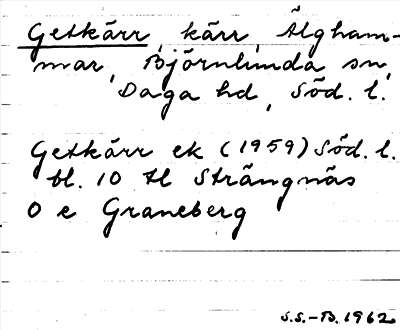 Getkärr, kärr, Älgham-
mar, Björnlunda sn,
Daga hd, Söd. l.
Getkärr ek (1959) Söd. l.
bl. 10 tl Strängnäs
O e Graneberg
S.S.-B. 1962